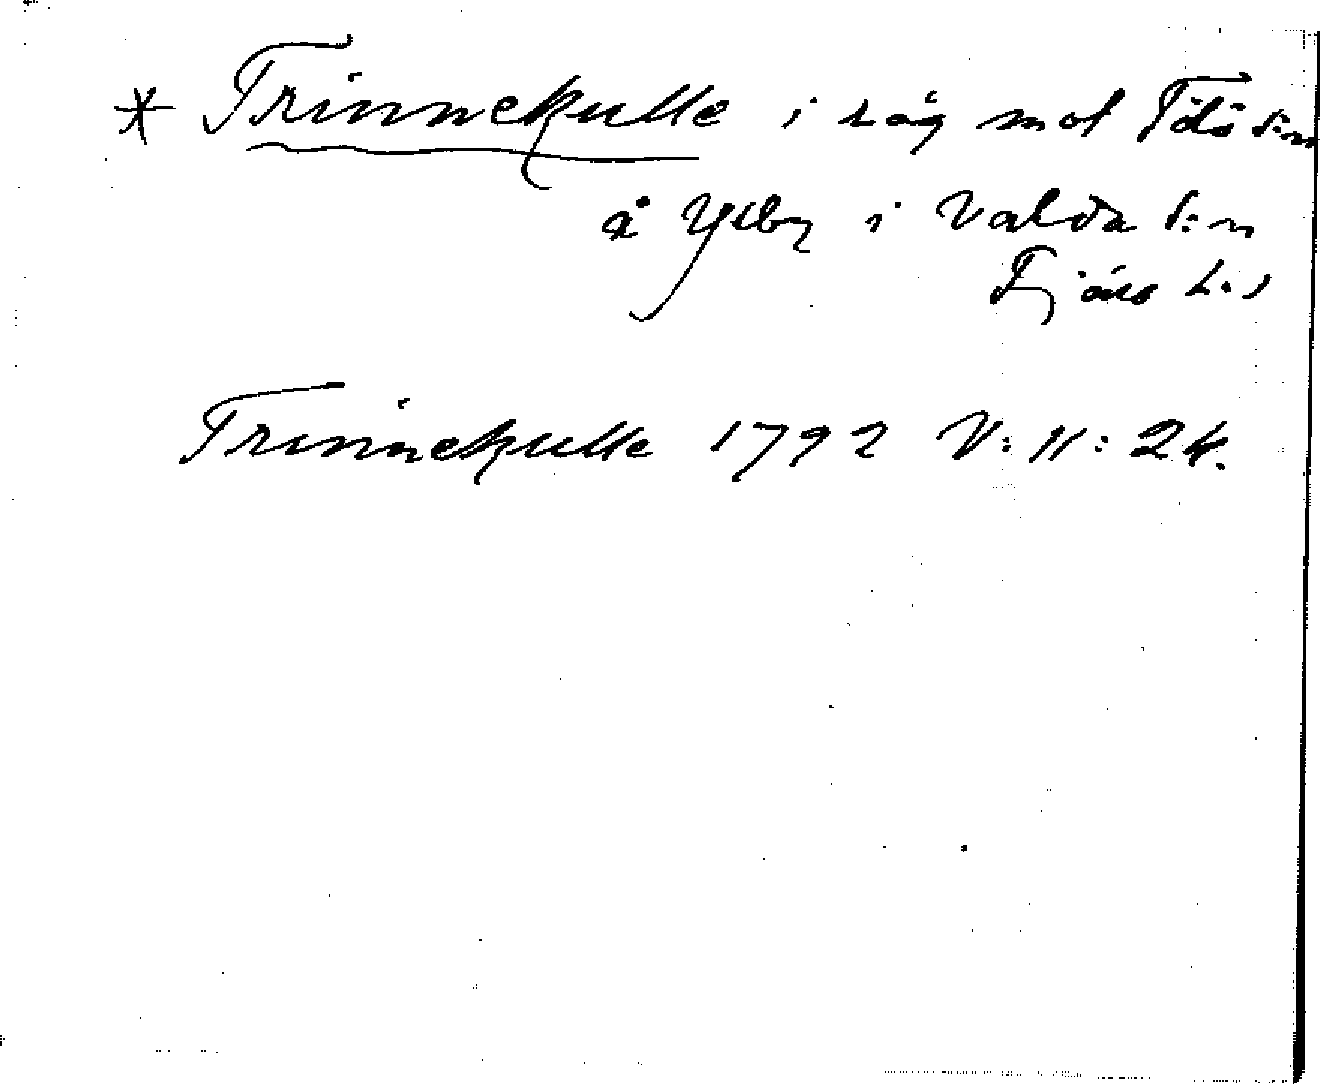 * Trinnekulle i råg mot Tölö s:n
å Yxby i Valda s:n
Fjäre h:d
Trinnekulle 1792 V: 11: 24.